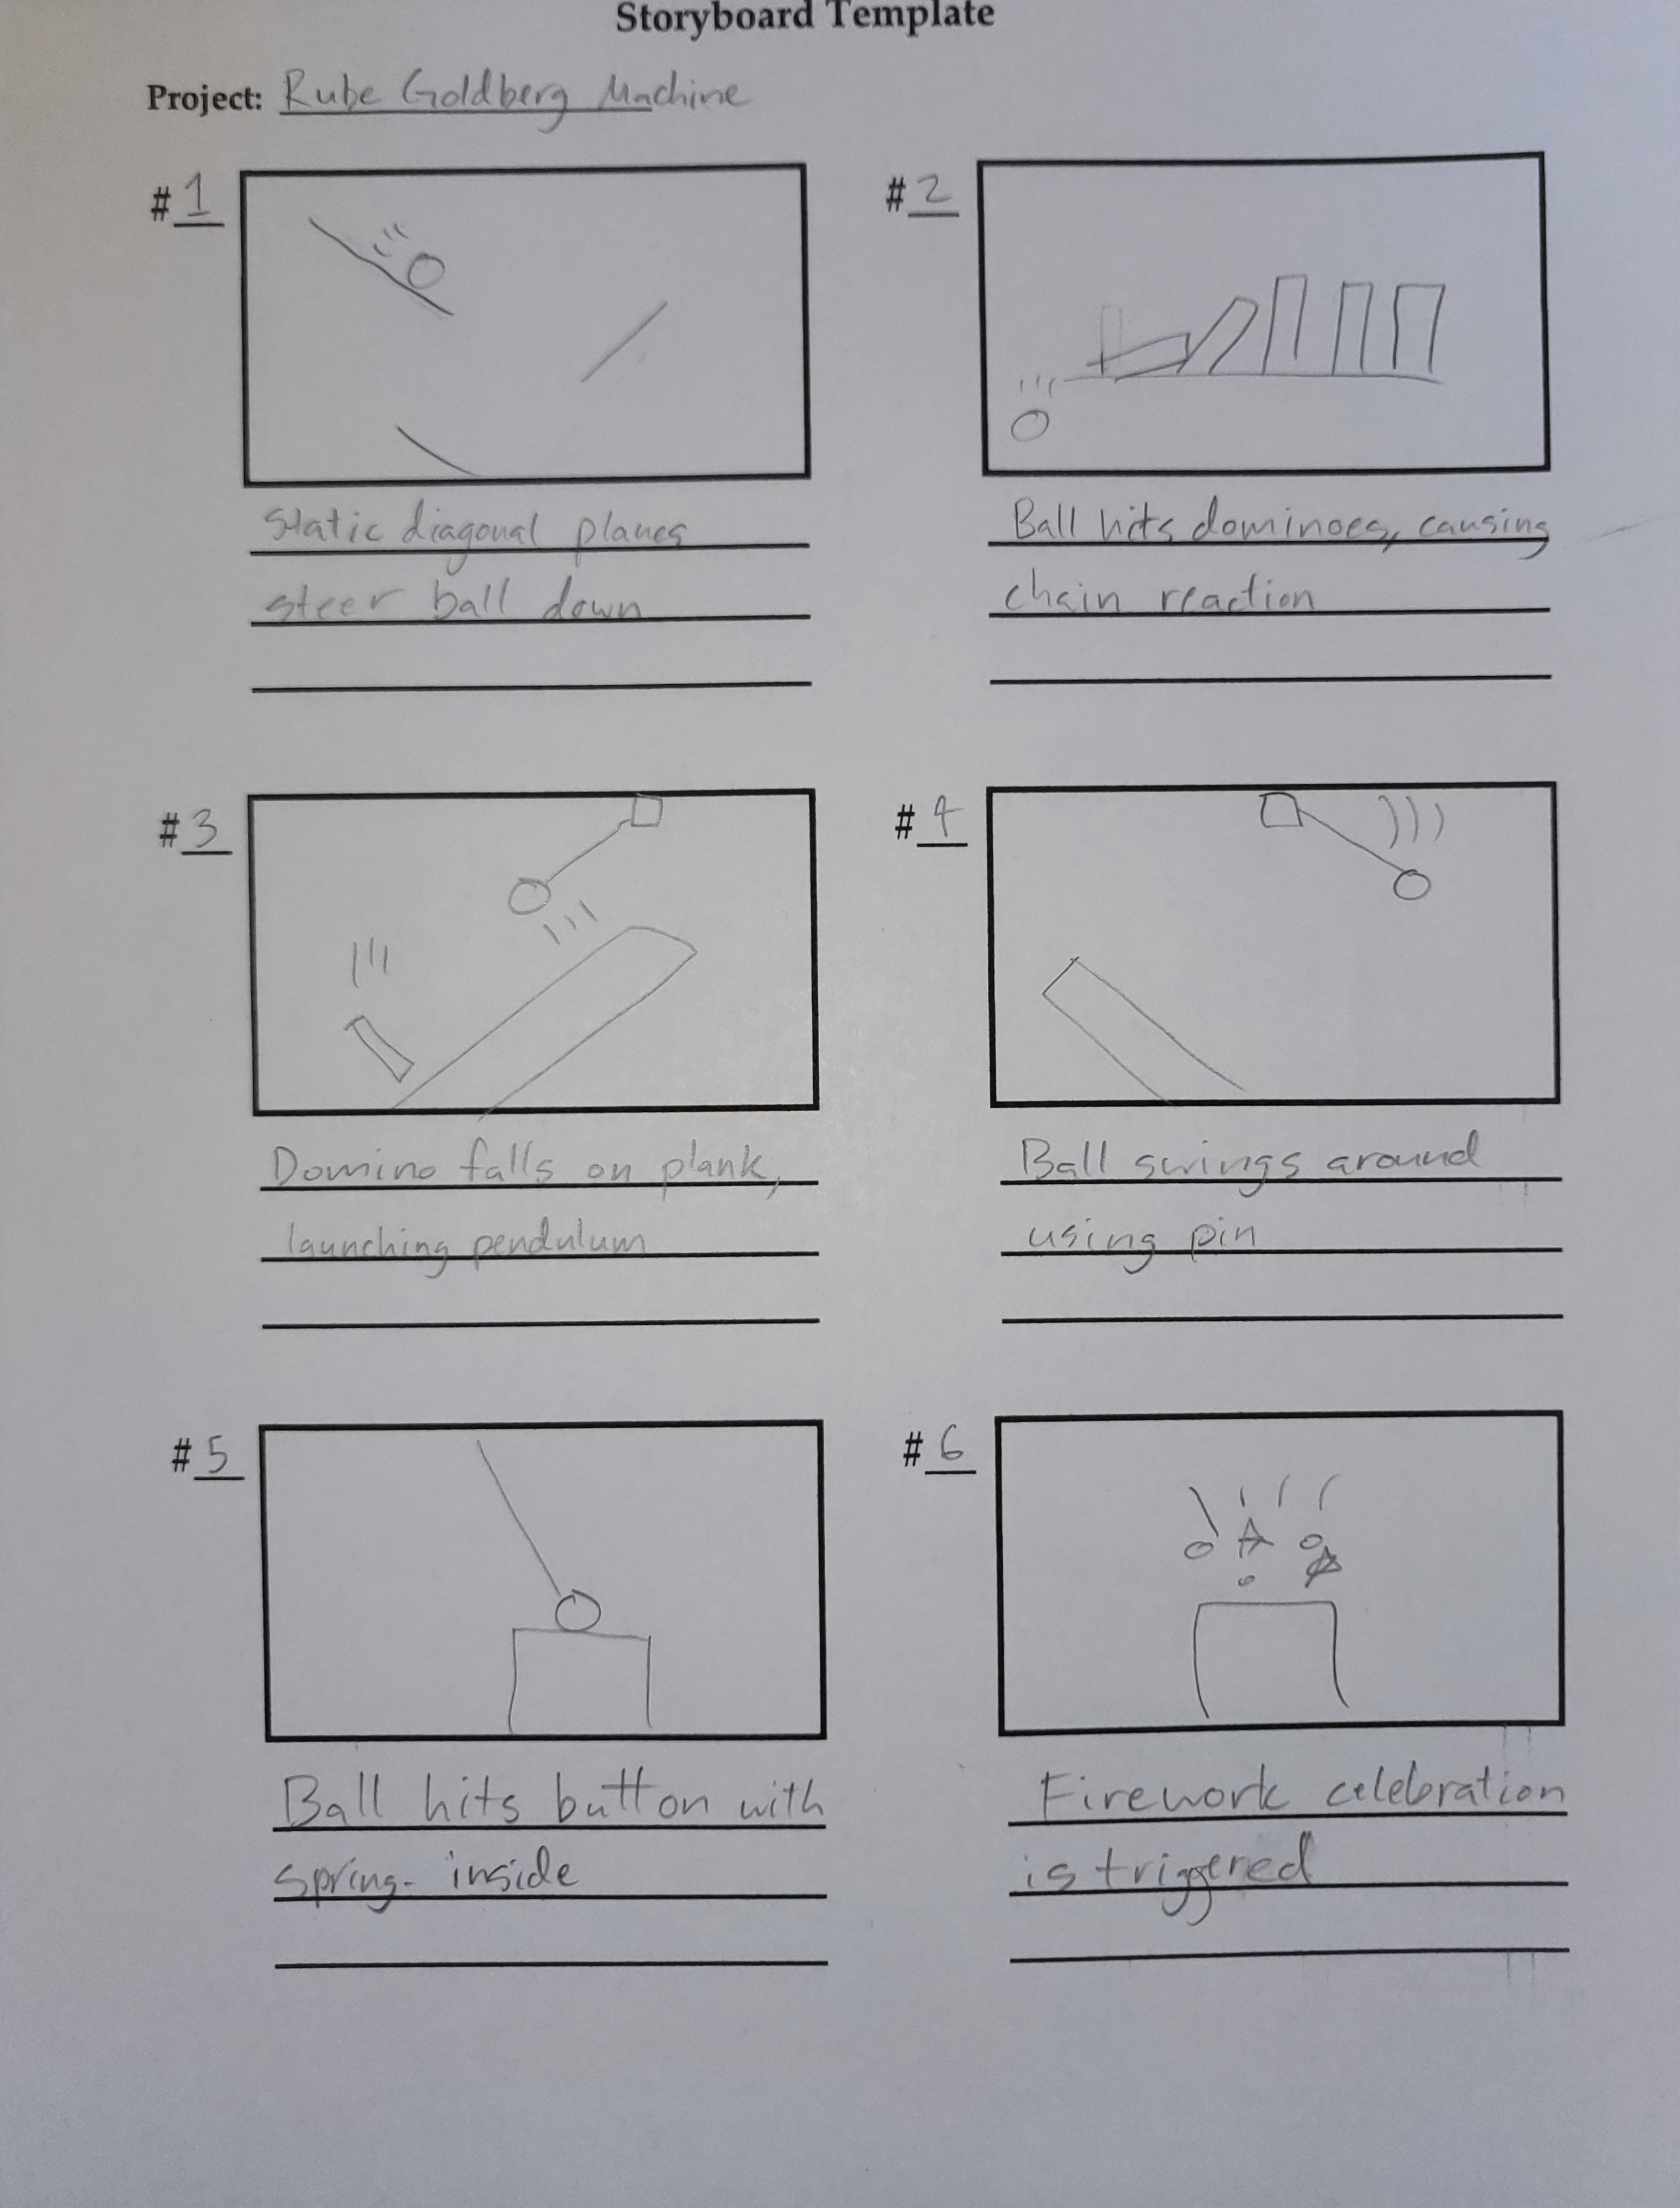 Storyboard Template
Project: Rube Goldberg Machine
#1
Static diagonal planes
steer ball down
#2
Ball hits dominoes, causing
chain reaction
#3
Domino falls on plank,
launching pendulum
#4
Ball swings around
using pin
#5
Ball hits button with
spring- inside
#6
Firework celebration
is triggered